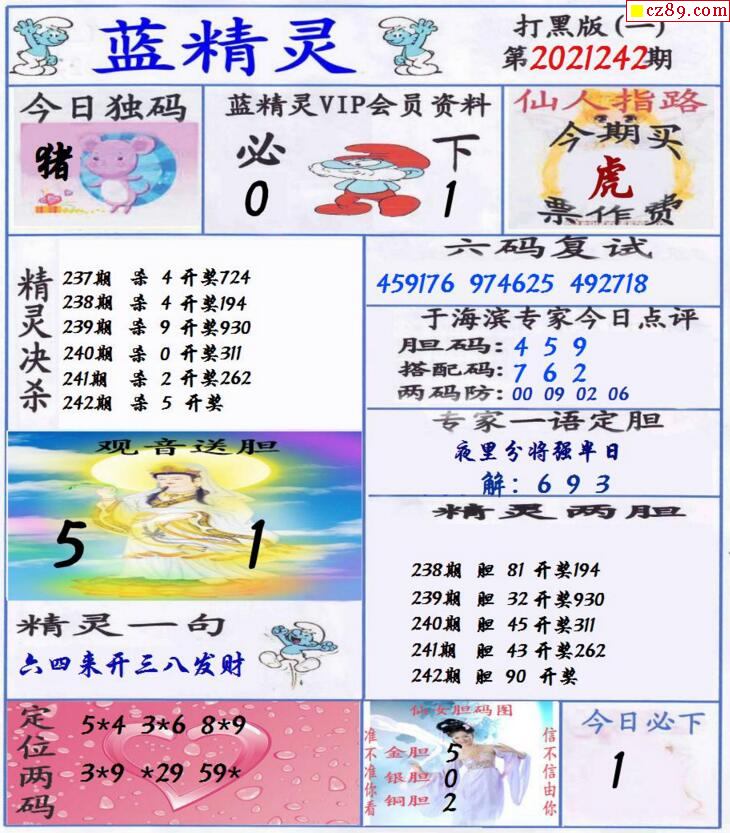 cz89.com
蓝精灵
打黑版(一)
第2021242期
今日独码
猪
蓝精灵VIP会员资料
必 下
0 1
仙人指路
今期买
虎
票作费
精灵决杀
237期 杀 4 开奖724
238期 杀 4 开奖194
239期 杀 9 开奖930
240期 杀 0 开奖311
241期 杀 2 开奖262
242期 杀 5 开奖
六码复试
459176 974625 492718
于海滨专家今日点评
胆码: 4 5 9
搭配码: 7 6 2
两码防: 00 09 02 06
专家一语定胆
夜里分将强半日
解: 6 9 3
观音送胆
5 1
精灵两胆
238期 胆 81 开奖194
239期 胆 32 开奖930
240期 胆 45 开奖311
241期 胆 43 开奖262
242期 胆 90 开奖
精灵一句
六四来开三八发财
定位两码
5*4 3*6 8*9
3*9 *29 59*
仙女胆码图
准不准你看
金胆 5
银胆 0
铜胆 2
信不信由你
今日必下
1